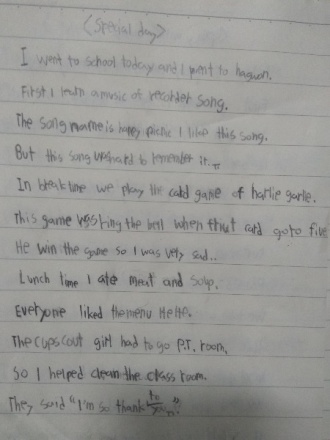 <Special day>
I went to school today and I went to hagwon.
First I learn a music of recorder song.
The song name is happy picnic I like this song.
But this song was hard to remember it.ㅠ
In break time we play the card game of harlie garlie.
This game was ring the bell when fruit card go to five
He win the game so I was very sad..
Lunch time I ate meat and soup.
Everyone liked the menu HeHe.
The cupscout girl had to go P.T. room.
So I helped clean the class room.
They said "I'm so thank to you"!